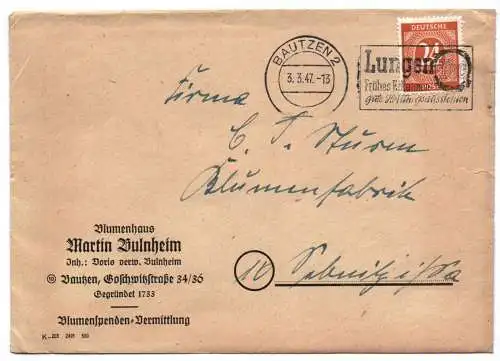 DEUTSCHE
24
BAUTZEN 2
3. 3. 47. -13
Lungen
Frühes
gute
Firma
C. T. Sturm
Blumenfabrik
10 Sebnitz i/Sa
Blumenhaus
Martin Bulnheim
Inh.: Doris verw. Bulnheim
10 Bautzen, Goschwitzstraße 34/36
Gegründet 1733
Blumenspenden-Vermittlung
K-